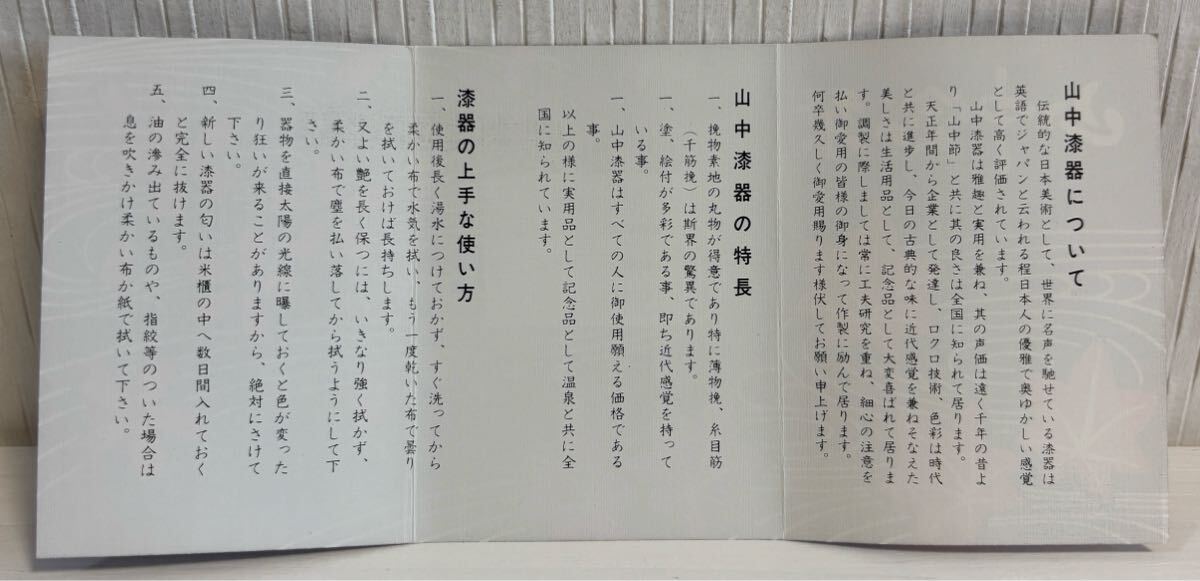 山中漆器について
伝統的な日本美術として、世界に名声を馳せている漆器は
英語でジャパンと云われる程日本人の優雅で奥ゆかしい感覚
として高く評価されています。
山中漆器は雅趣と実用を兼ね、其の声価は遠く千年の昔よ
り「山中節」と共に其の良さは全国に知られて居ります。
天正年間から企業として発達し、ロクロ技術、色彩は時代
と共に進歩し、今日の古典的な味に近代感覚を兼ねそなえた
美しさは生活用品として、記念品として大変喜ばれて居りま
す。調製に際しましては常に工夫研究を重ね、細心の注意を
払い御愛用の皆様の御身になって作製に励んで居ります。
何卒幾久しく御愛用賜ります様伏してお願い申上げます。
山中漆器の特長
一、挽物素地の丸物が得意であり特に薄物挽、糸目筋
（千筋挽）は斯界の驚異であります。
一、塗、絵付が多彩である事、即ち近代感覚を持って
いる事。
一、山中漆器はすべての人に御使用願える価格である
事。
以上の様に実用品として記念品として温泉と共に全
国に知られています。
漆器の上手な使い方
一、使用後長く湯水につけておかず、すぐ洗ってから
柔かい布で水気を拭い、もう一度乾いた布で曇り
を拭いておけば長持ちします。
二、又よい艶を長く保つには、いきなり強く拭かず、
柔かい布で塵を払い落してから拭うようにして下
さい。
三、器物を直接太陽の光線に曝しておくと色が変った
り狂いが来ることがありますから、絶対にさけて
下さい。
四、新しい漆器の匂いは米櫃の中へ数日間入れておく
と完全に抜けます。
五、油の滲み出ているものや、指紋等のついた場合は
息を吹きかけ柔かい布か紙で拭いて下さい。